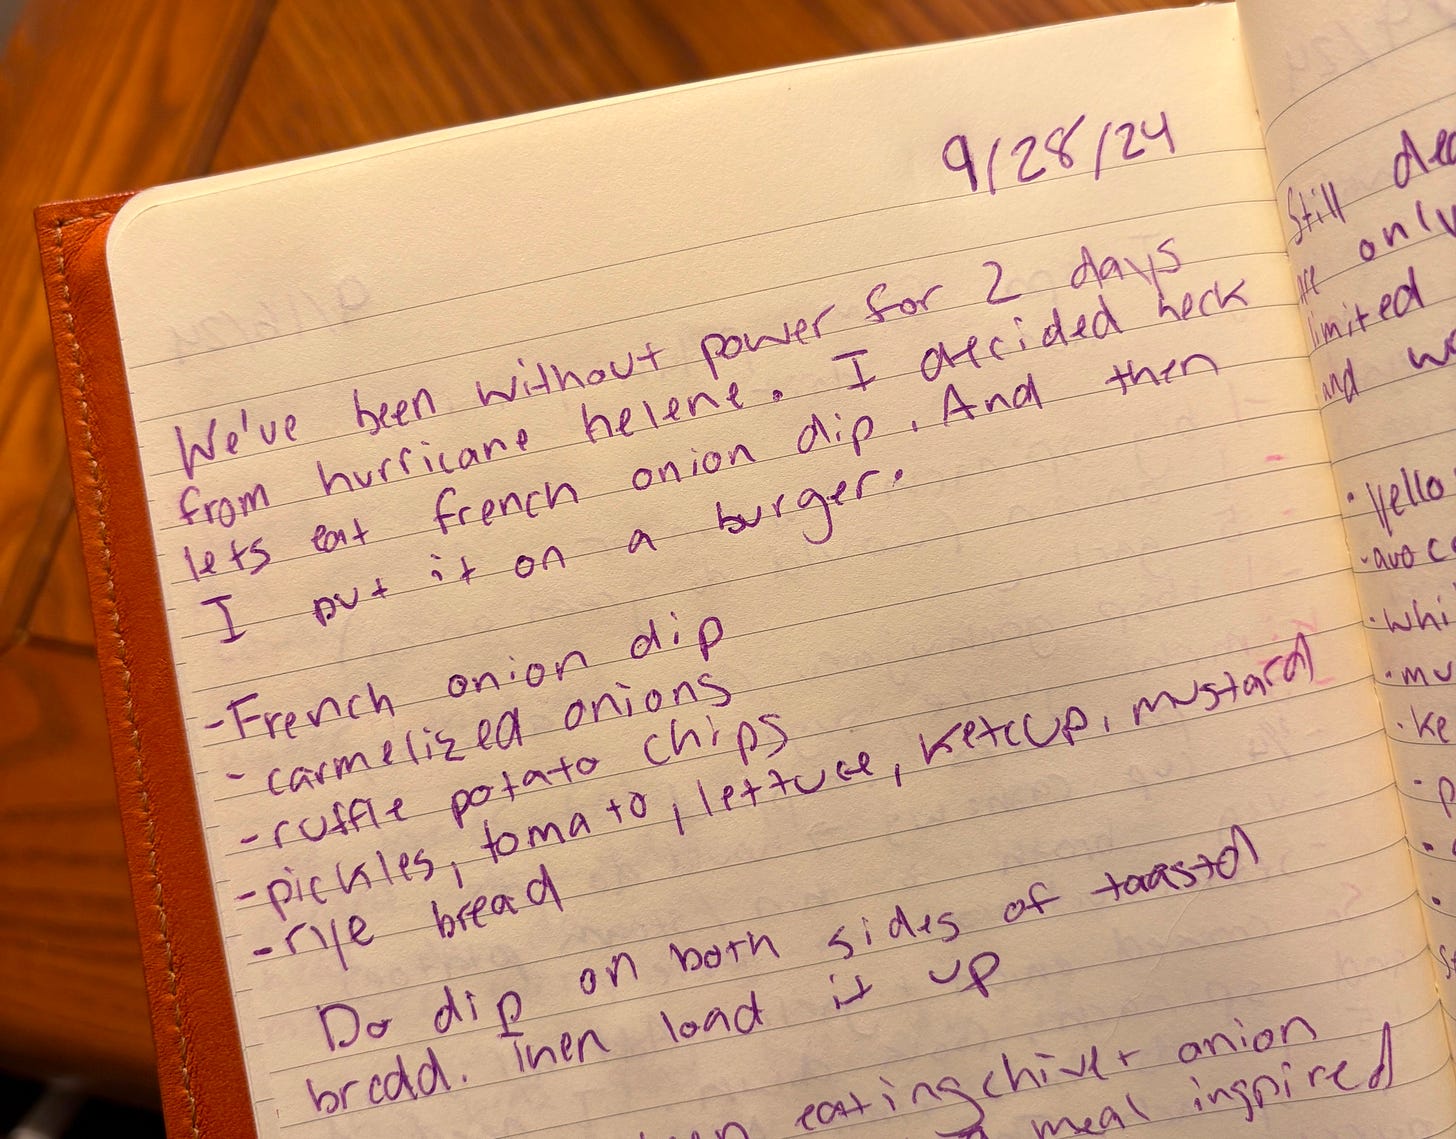 9/28/24
We've been without power for 2 days
from hurricane helene. I decided heck
lets eat french onion dip. And then
I put it on a burger.
-French onion dip
-carmelized onions
-ruffle potato chips
-pickles, tomato, lettuce, ketcup, mustard
-rye bread
Do dip on both sides of toastd
bread. Then load it up
eating chive + onion
meal inspired
Still
only
limited
and
·Hello